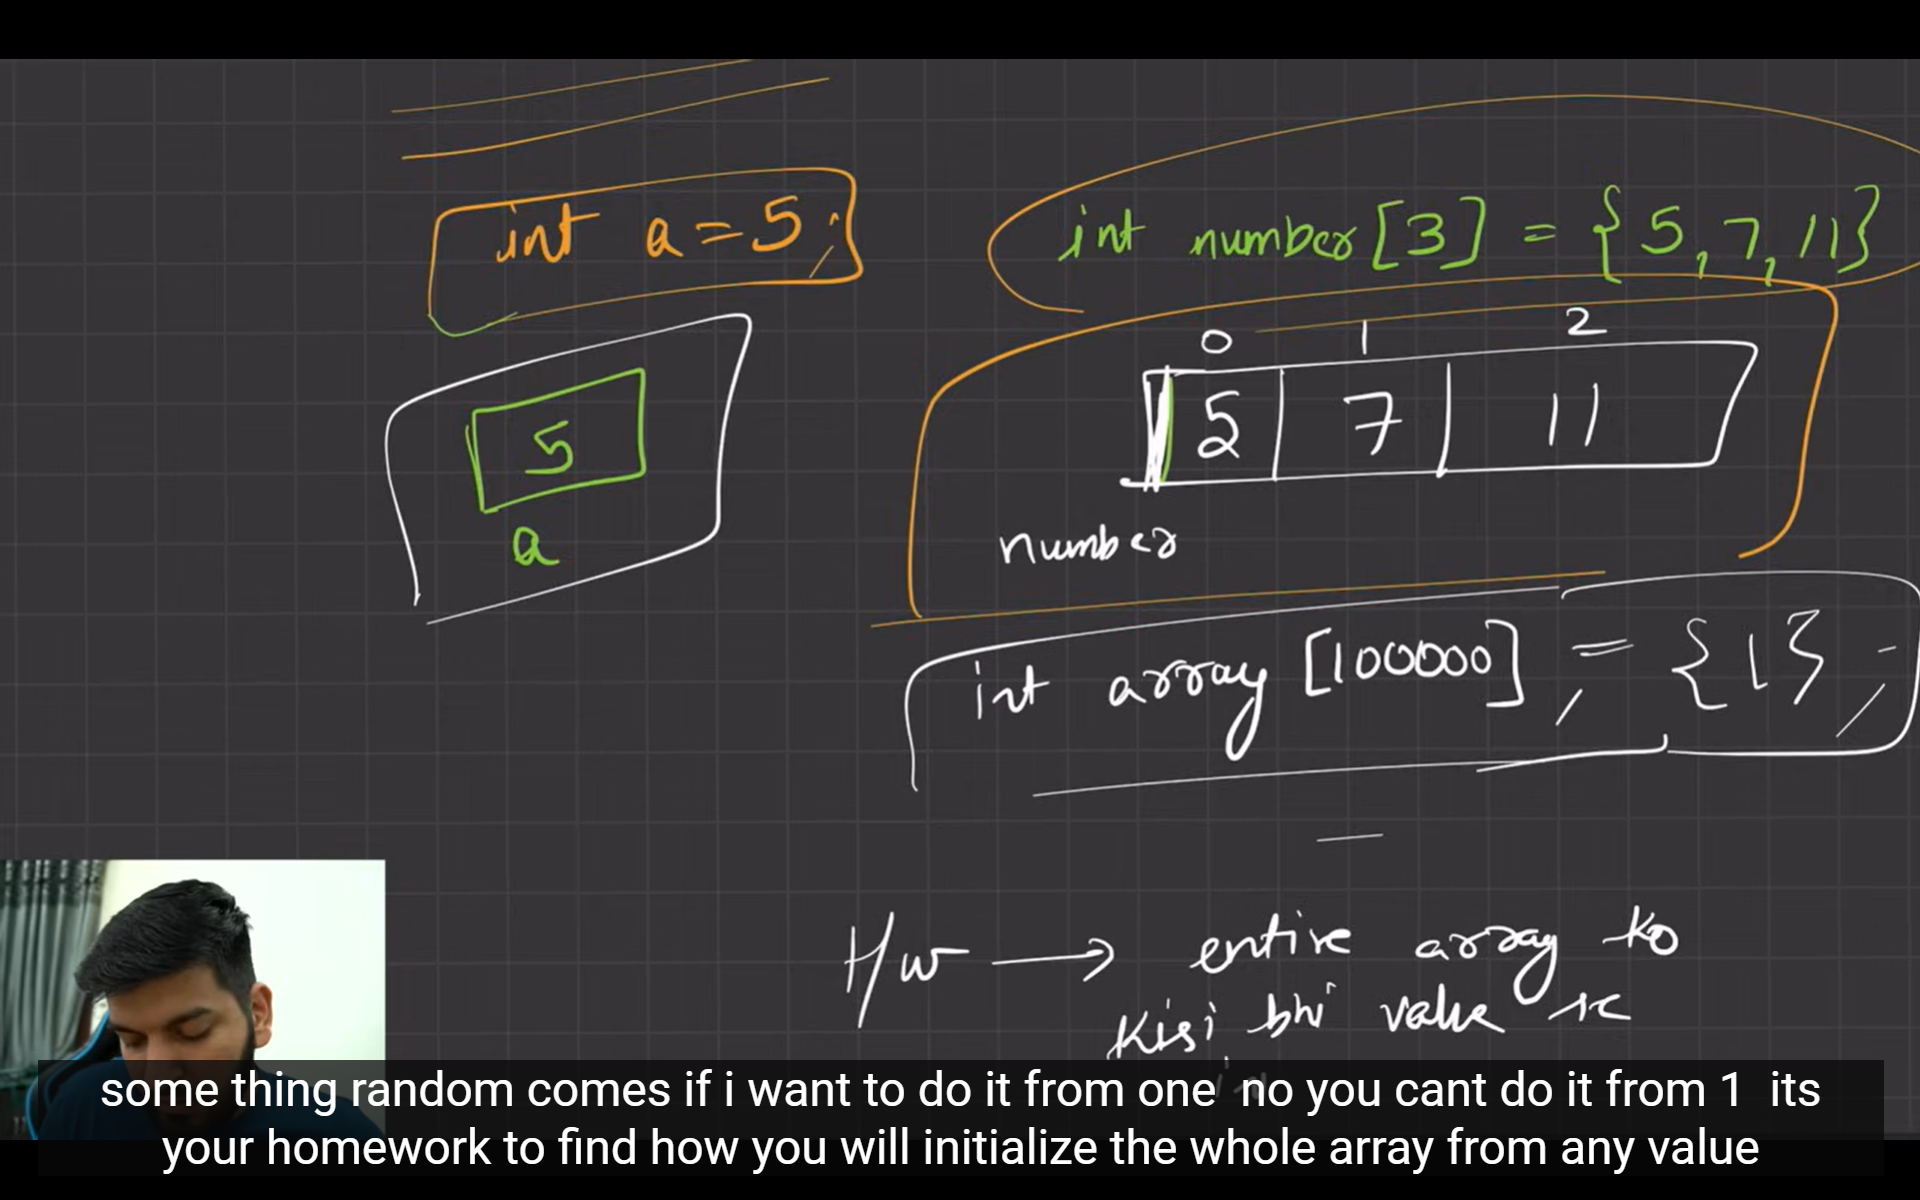 int a = 5;
int number[3] = {5, 7, 11}
0 1 2
5 7 11
5
a
number
int array [100000], = {1};
H/w → entire array ko
kisi bhi value se
some thing random comes if i want to do it from one no you cant do it from 1 its
your homework to find how you will initialize the whole array from any value